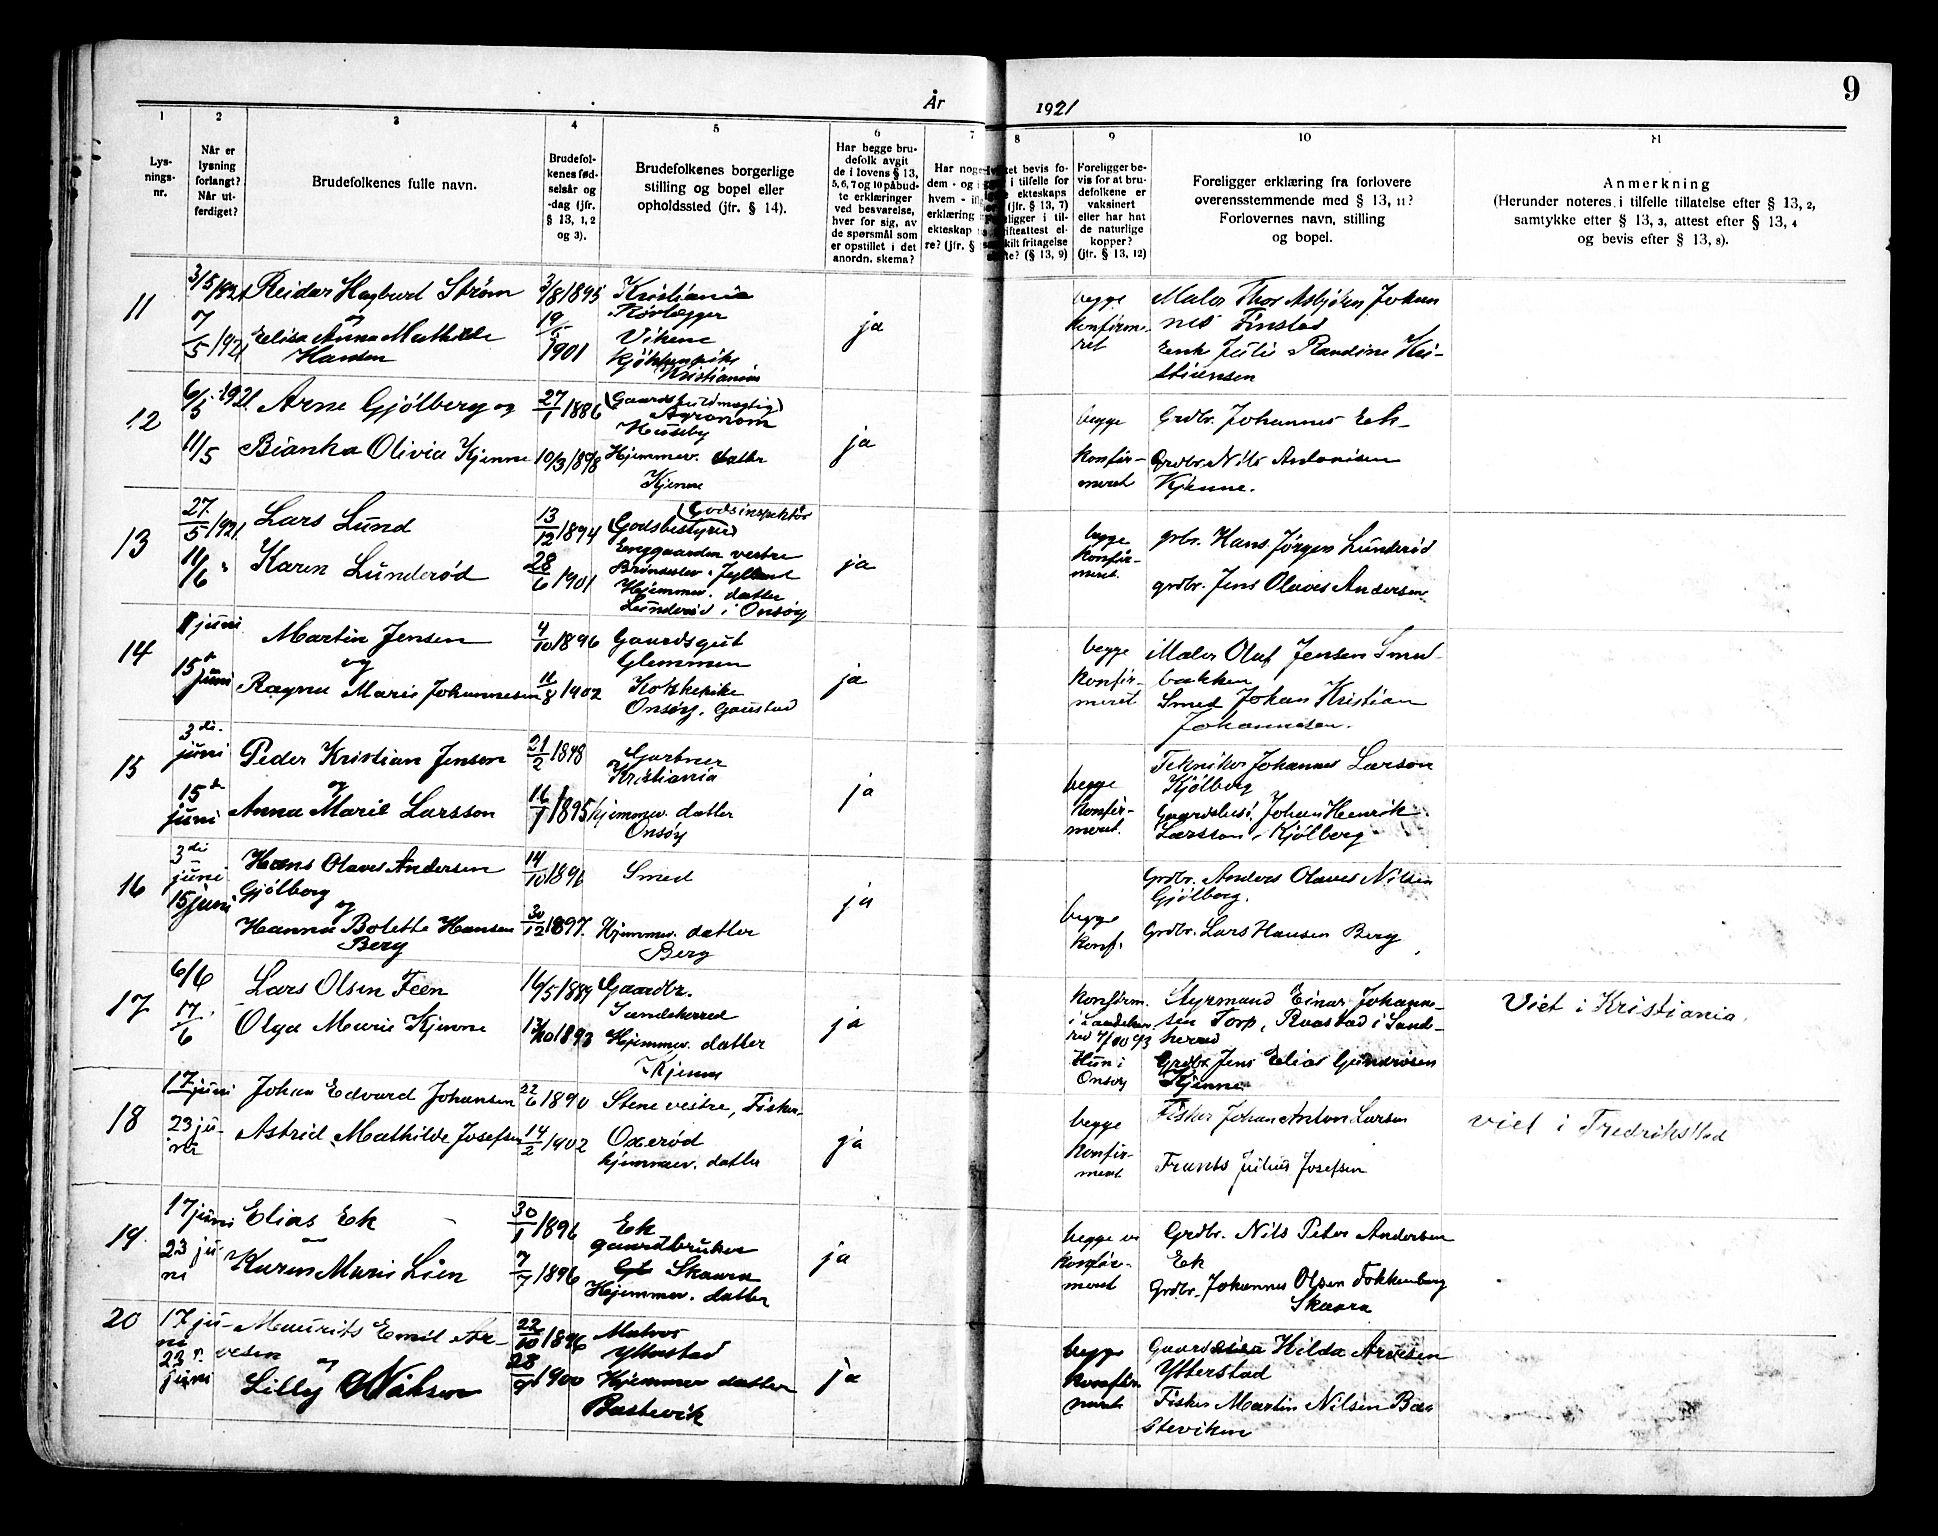 År 1921
9
1
Lysnings-
nr.
2
Når er
lysning
forlangt?
Når ut-
ferdiget?
3
Brudefolkenes fulle navn.
4
Brudefol-
kenes fød-
selsår og
-dag (jfr.
§ 13, 1, 2
og 3).
5
Brudefolkenes borgerlige
stilling og bopel eller
opholdssted (jfr. § 14).
6
Har begge bru-
defolk avgit
de i lovens § 13,
5, 6, 7 og 10 påbud-
te erklæringer
ved besvarelse,
hver for sig, av
de spørsmål som
er opstillet i det
anordn. skema?
7
Har noge
dem - og i
hvem -
erklæring
ekteskap
re? (jfr. §
8
bevis fo-
i tilfelle for
ekteskaps
(jfr. § 13, 7)
ligger i til-
skifteattest el-
fritagelse
(§ 13, 9)
9
Foreligger be-
vis for at bru-
defolkene er
vaksinert
eller har hat
de naturlige
kopper?
(jfr. § 13, 12)
10
Foreligger erklæring fra forlovere
overensstemmende med § 13, 11?
Forlovernes navn, stilling
og bopel.
11
Anmerkning
(Herunder noteres i tilfelle tillatelse efter § 13, 2,
samtykke efter § 13, 3, attest efter § 13, 4
og bevis efter § 13, 8).
11
3/5 1921
7/5 1921
Reidar Hagbart Strøm
og
Elisa Anna Mathilde
Hansen
3/8 1895
19/5 1901
Kristiania
Rørlægger
Vikene
Kristiania
ja
begge
konfirme-
ret
Maler Thor Asbjørn Johan
nes Finstad
Enk Julie Randine Kri-
stiensen
12
6/5 1921
11/5
Arne Gjølberg og
Bianka Olivia Kjenne
27/7 1886
10/3 1898
(Gaardsfuldmægtig)
Agronom
Huseby
Hjemmev. datter
Kjenne
ja
begge
konfir-
meret
Grdbr. Johannes Ek
Grdbr. Nils Antonisen
Kjenne.
13
27/5 1921
11/6
Lars Lund
Karen Lunderød
13/12 1894
28/6 1901
(Godsinspektør
Godsbestyrer)
Enggaarden vestre
Brønderslev Jylland
Hjemmev. datter
Lunderød i Onsøy
ja
begge
konfir-
meret.
grbr. Hans Jørgen Lunderød
grdbr. Jens Olaves Andersen
14
8 juni
15 juni
Martin Jensen
og
Ragna Marie Johannesen
4/10 1896
11/8 1902
Gaardsgut
Glemmen
Kokkepike
Onsøy, Gaustad
ja
begge
konfir-
meret
Maler Olaf Jensen Smed-
bakken
Smed Johan Kristian
Johannesen.
15
3die
juni
15de
juni
Peder Kristian Jensen
og
Anna Marie Larsson
21/2 1898
16/7 1895
Gartner
Kristiania
hjemmev. datter
Onsøy
ja
begge
konfir-
meret.
Tekniker Johannes Larson
Kjølberg
Johan Henrik
Larsson, Kjølberg
16
3die
juni
15 juni
Hans Olaves Andersen
Gjølberg
og
Hanna Bolette Hansen
Berg
14/10 1896
30/12 1897.
Smed
Hjemmev. datter
Berg
ja
begge
konf.
Grdbr. Anders Olaves Nilsen
Gjølberg.
Grdbr. Lars Hansen Berg
17
6/6
17/6
Lars Olsen Feen
Olga Marie Kjenne
16/5 1889
1893
Gaardbr.
Sandeherred
Hjemmev. datter
Kjenne
ja
konfirm.
i Sandeher-
red
Hun i
Onsøy
Styrmand Einar Johanne-
sen Torp, Raastad i Sand-
herred
Grdbr. Jens Elias Gundersen
Kjenne
Viet i Kristiania.
18
17 juni
23 ju-
ni
Johan Edvard Johansen
Astrid Mathilde Josefsen
22/6 1890
14/2 1902
Stene vestre, Fisker.
Oxerød
hjemmev. datter
ja
begge
konfir-
meret
Fisker Johan Anton Larsen
Frants Julius Josefsen
viet i Fredrikstad
19.
17 juni
23 ju-
ni
Elias Ek
Karen Marie Lien
30/1 1896
7/7 1896
Ek
gaardbruker
Skaara
Hjemmev. datter
ja
begge er
konfir-
meret
Grdbr. Nils Peter Andersen
Ek
Grdbr. Johannes Olsen Fokkenborg
Skaara
20
17 ju-
ni
23
juni
Maurits Emil Ar-
vesen
og
Lilly Nilsen
22/10 1896
28/9 1900
Matros
Ytterstad
Hjemmev datter
Bastevik
ja
begge
konfir-
meret
Hilda Arvesen
Ytterstad
Fisker Martin Nilsen Ba-
steviken